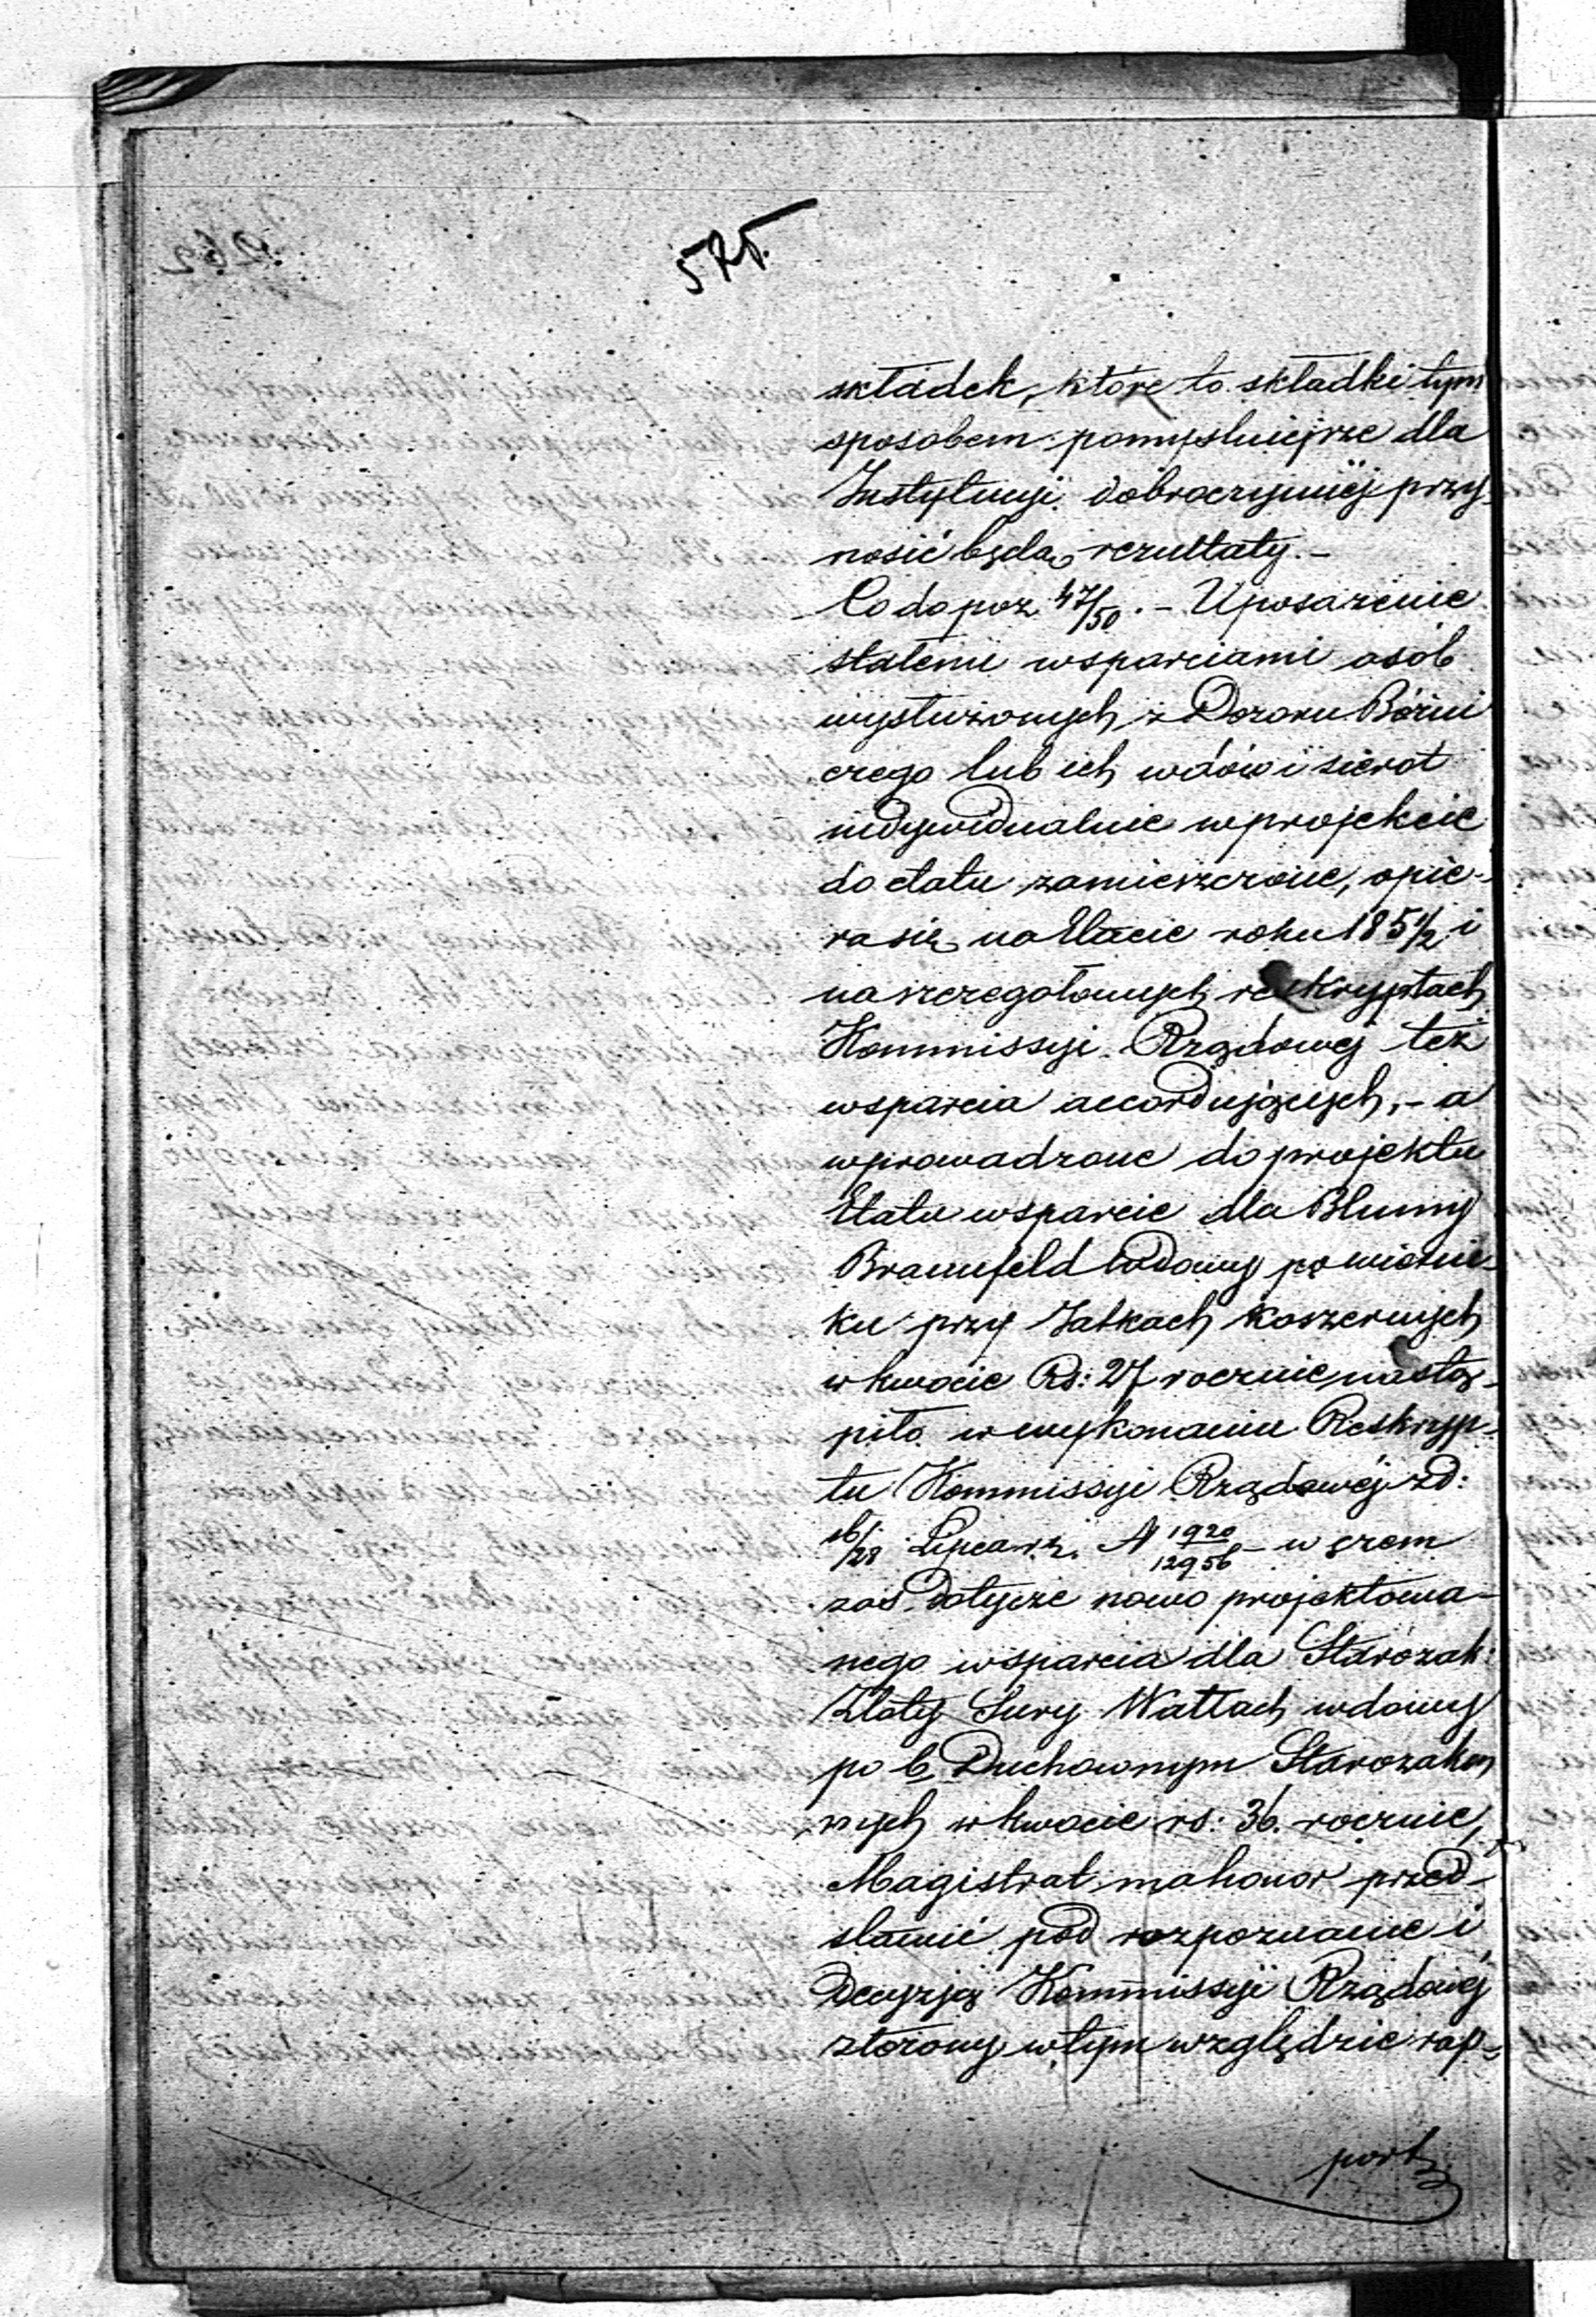 575.
składek, które to składki tym
sposobem pomyślniejsze dla
Instytucyi dobroczynnéj przy-
nosić będą rezultaty. –
Co do poz 47/50. – Uposażenie
stałemi wsparciami osób
wysłużonych z Dozoru Bóżni
czego lub ich wdów i sierot
indywidualnie w projekcie
do etatu zamieszczone, opie-
ra się na Etacie roku 1851/2 i
na szczegółowych reskryptach
Kommissyi Rządowej też
wsparcia accordujących, – a
wprowadzone do projektu
Etatu wsparcie dla Blumy
Braunfeld wdowy po
ku przy Jatkach koszernych
w kwocie Rs: 27 rocznie, nastą-
piło w wykonaniu Reskryp-
tu Kommissyi Rządowéj z d:
16/28 Lipca r.z. N 1920/12956 – w czem
zaś dotycze nowo projektowa-
nego wsparcia dla Starozak:
Złoty Sury Wallach wdowy
po b. Duchownym Starozakon
nych w kwocie rs: 36. rocznie,
Magistrat ma honor przed-
stawić pod rozpoznanie i
Decyzją Kommissyi Rządowéj
złożony w tym względzie rap-
port